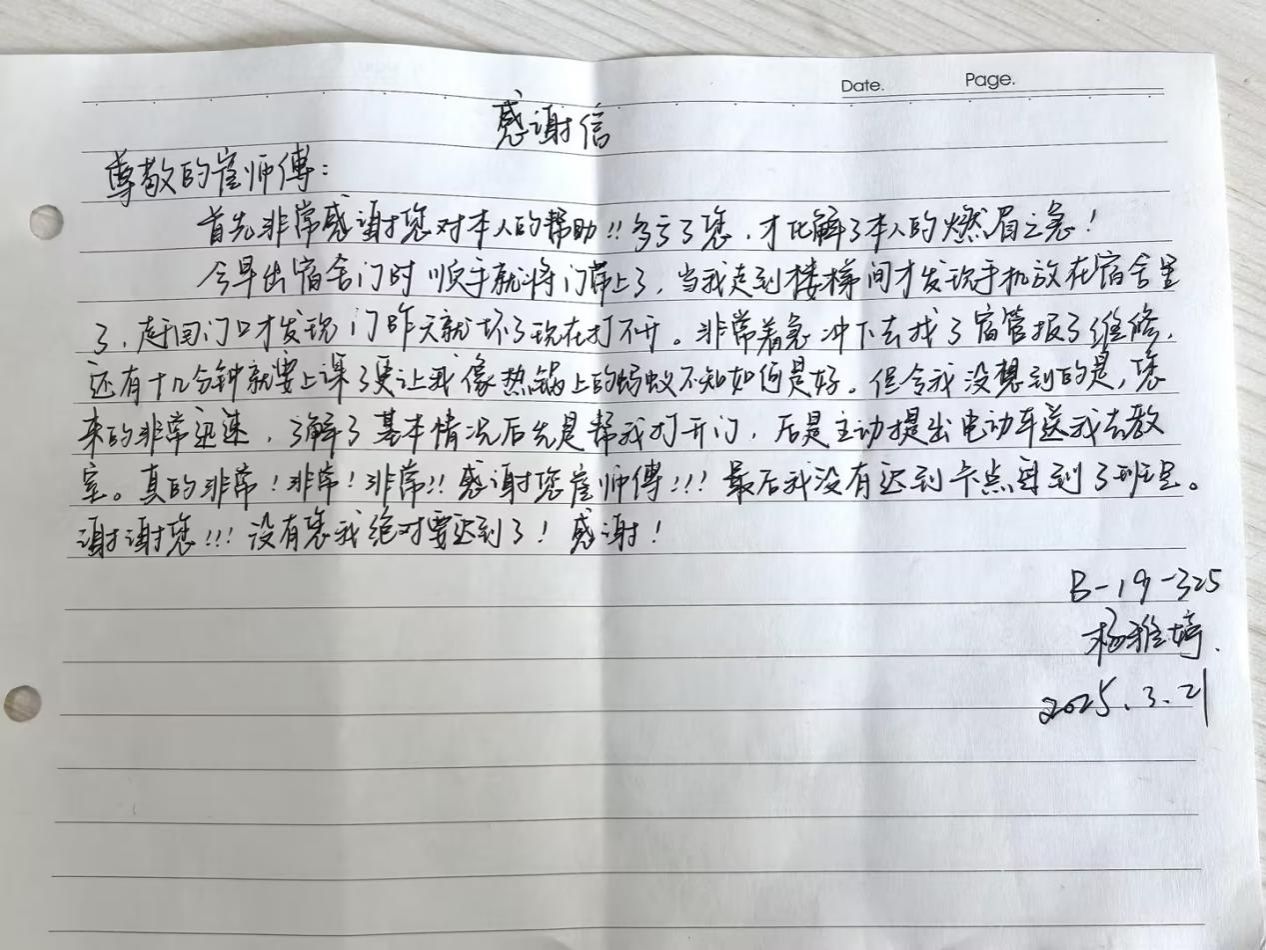 Date. Page.
感谢信
尊敬的崔师傅：
首先非常感谢您对本人的帮助!!多亏了您，才化解了本人的燃眉之急！
今早出宿舍门时顺手就将门带上了，当我走到楼梯间才发现手机放在宿舍里
了，赶回门口才发现门昨天就坏了现在打不开。非常着急冲下去找了宿管报了维修，
还有十几分钟就要上课了更让我像热锅上的蚂蚁不知如何是好。但令我没想到的是，您
来的非常迅速，了解了基本情况后先是帮我打开门，后是主动提出电动车送我去教
室。真的非常！非常！非常!!感谢您崔师傅!!!最后我没有迟到卡点到了班里。
谢谢您!!!没有您我绝对要迟到了！感谢！
B-19-325
杨雅婷.
2025.3.21